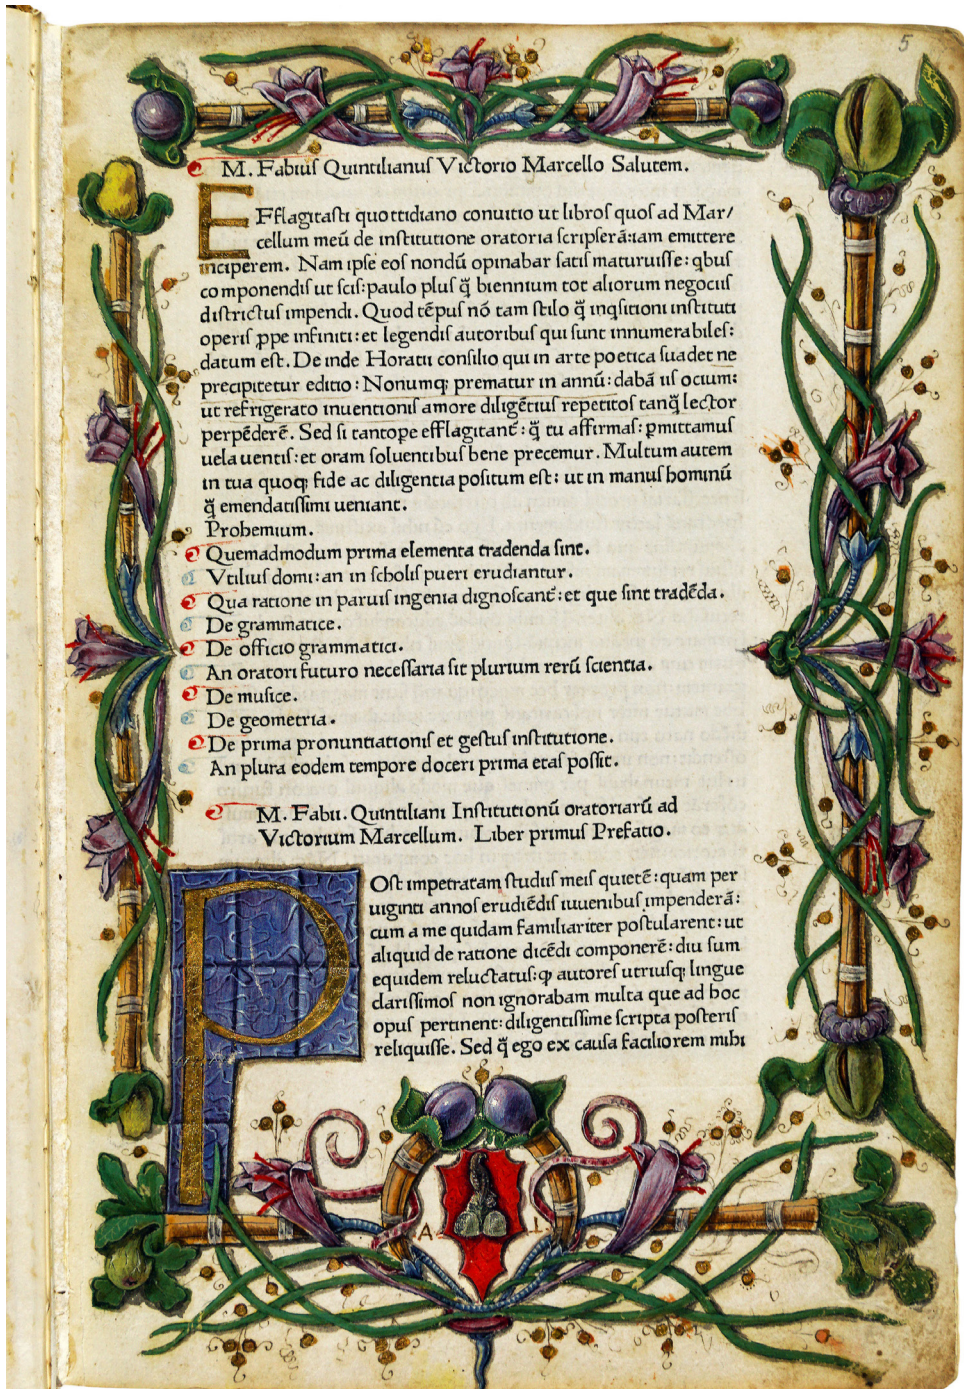 5
M. Fabiuſ Quintilianuſ Victorio Marcello Salutem.
EFflagitaſti quottidiano conuitio ut libroſ quoſ ad Mar/
cellum meū de inſtitutione oratoria ſcripſerā:iam emittere
inciperem. Nam ipſe eoſ nondū opinabar ſatiſ maturuiſſe: qbuſ
componendiſ ut ſciſ:paulo pluſ q̄ biennium tot aliorum negociiſ
diſtrictuſ impendi. Quod tēpuſ nō tam ſtilo q̄ inqſitioni inſtituti
operiſ ꝓpe infiniti:et legendiſ autoribuſ qui ſunt innumerabileſ:
datum eſt. De inde Horatii conſilio qui in arte poetica ſuadet ne
precipitetur editio: Nonumqꝫ prematur in annū: dabā iiſ ocium:
ut refrigerato inuentioniſ amore diligētiuſ repetitoſ tanq̄ lector
perpēderē. Sed ſi tantoꝑe efflagitant̄: q̄ tu affirmaſ: ꝑmittamuſ
uela uentiſ: et oram ſoluentibuſ bene precemur. Multum autem
in tua quoqꝫ fide ac diligentia poſitum eſt: ut in manuſ hominū
q̄ emendatiſſimi ueniant.
Prohemium.
Quemadmodum prima elementa tradenda ſint.
Vtiliuſ domi: an in ſcholiſ pueri erudiantur.
Qua ratione in paruiſ ingenia dignoſcant̄: et que ſint tradēda.
De grammatice.
De officio grammatici.
An oratori futuro neceſſaria ſit plurium rerū ſcientia.
De muſice.
De geometria.
De prima pronuntiationiſ et geſtuſ inſtitutione.
An plura eodem tempore doceri prima etaſ poſſit.
M. Fabii. Quintiliani Inſtitutionū oratoriarū ad
Victorium Marcellum. Liber primuſ Prefatio.
POſt impetratam ſtudiiſ meiſ quietē: quam per
uiginti annoſ erudiēdiſ iuuenibuſ impenderā:
cum a me quidam familiariter poſtularent: ut
aliquid de ratione dicēdi componerē: diu ſum
equidem reluctatuſ: ꝙ autoreſ utriuſqꝫ lingue
clariſſimoſ non ignorabam multa que ad hoc
opuſ pertinent: diligentiſſime ſcripta poſteriſ
reliquiſſe. Sed q̄ ego ex cauſa faciliorem mihi
A L